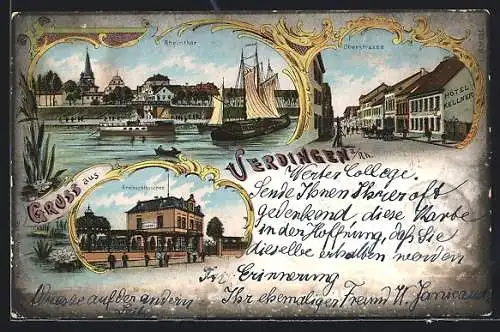 Rheinthor
Oberstrasse
HOTEL
KELLNER
GRUSS aus
UERDINGEN a/Rh.
Werter College.
Sende Ihnen Ihrer oft
gedenkend, diese Karte
in der Hoffnung, daß Sie
dieselbe erhalten werden
Zur Erinnerung
Ihr ehemaliger Freund
auf der andern